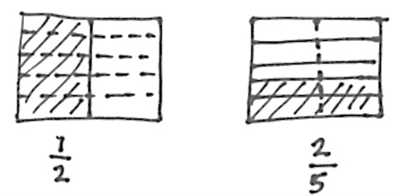 1/2
2/5